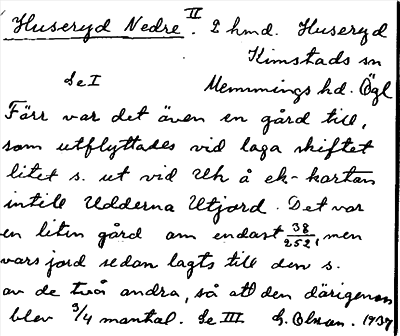 Huseryd Nedre. II 2 hmd. Huseryd
Kimstads sn
Se I Memmings hd. Ögl
Förr var det även en gård till,
som utflyttades vid laga skiftet
litet s. ut vid Uh å ek-kartan
intill Udderna Utjord. Det var
en liten gård om endast 38/252, men
vars jord sedan lagts till den s.
av de två andra, så att den därigenom
blev 3/4 mantal. Se III G. Olson. 1937